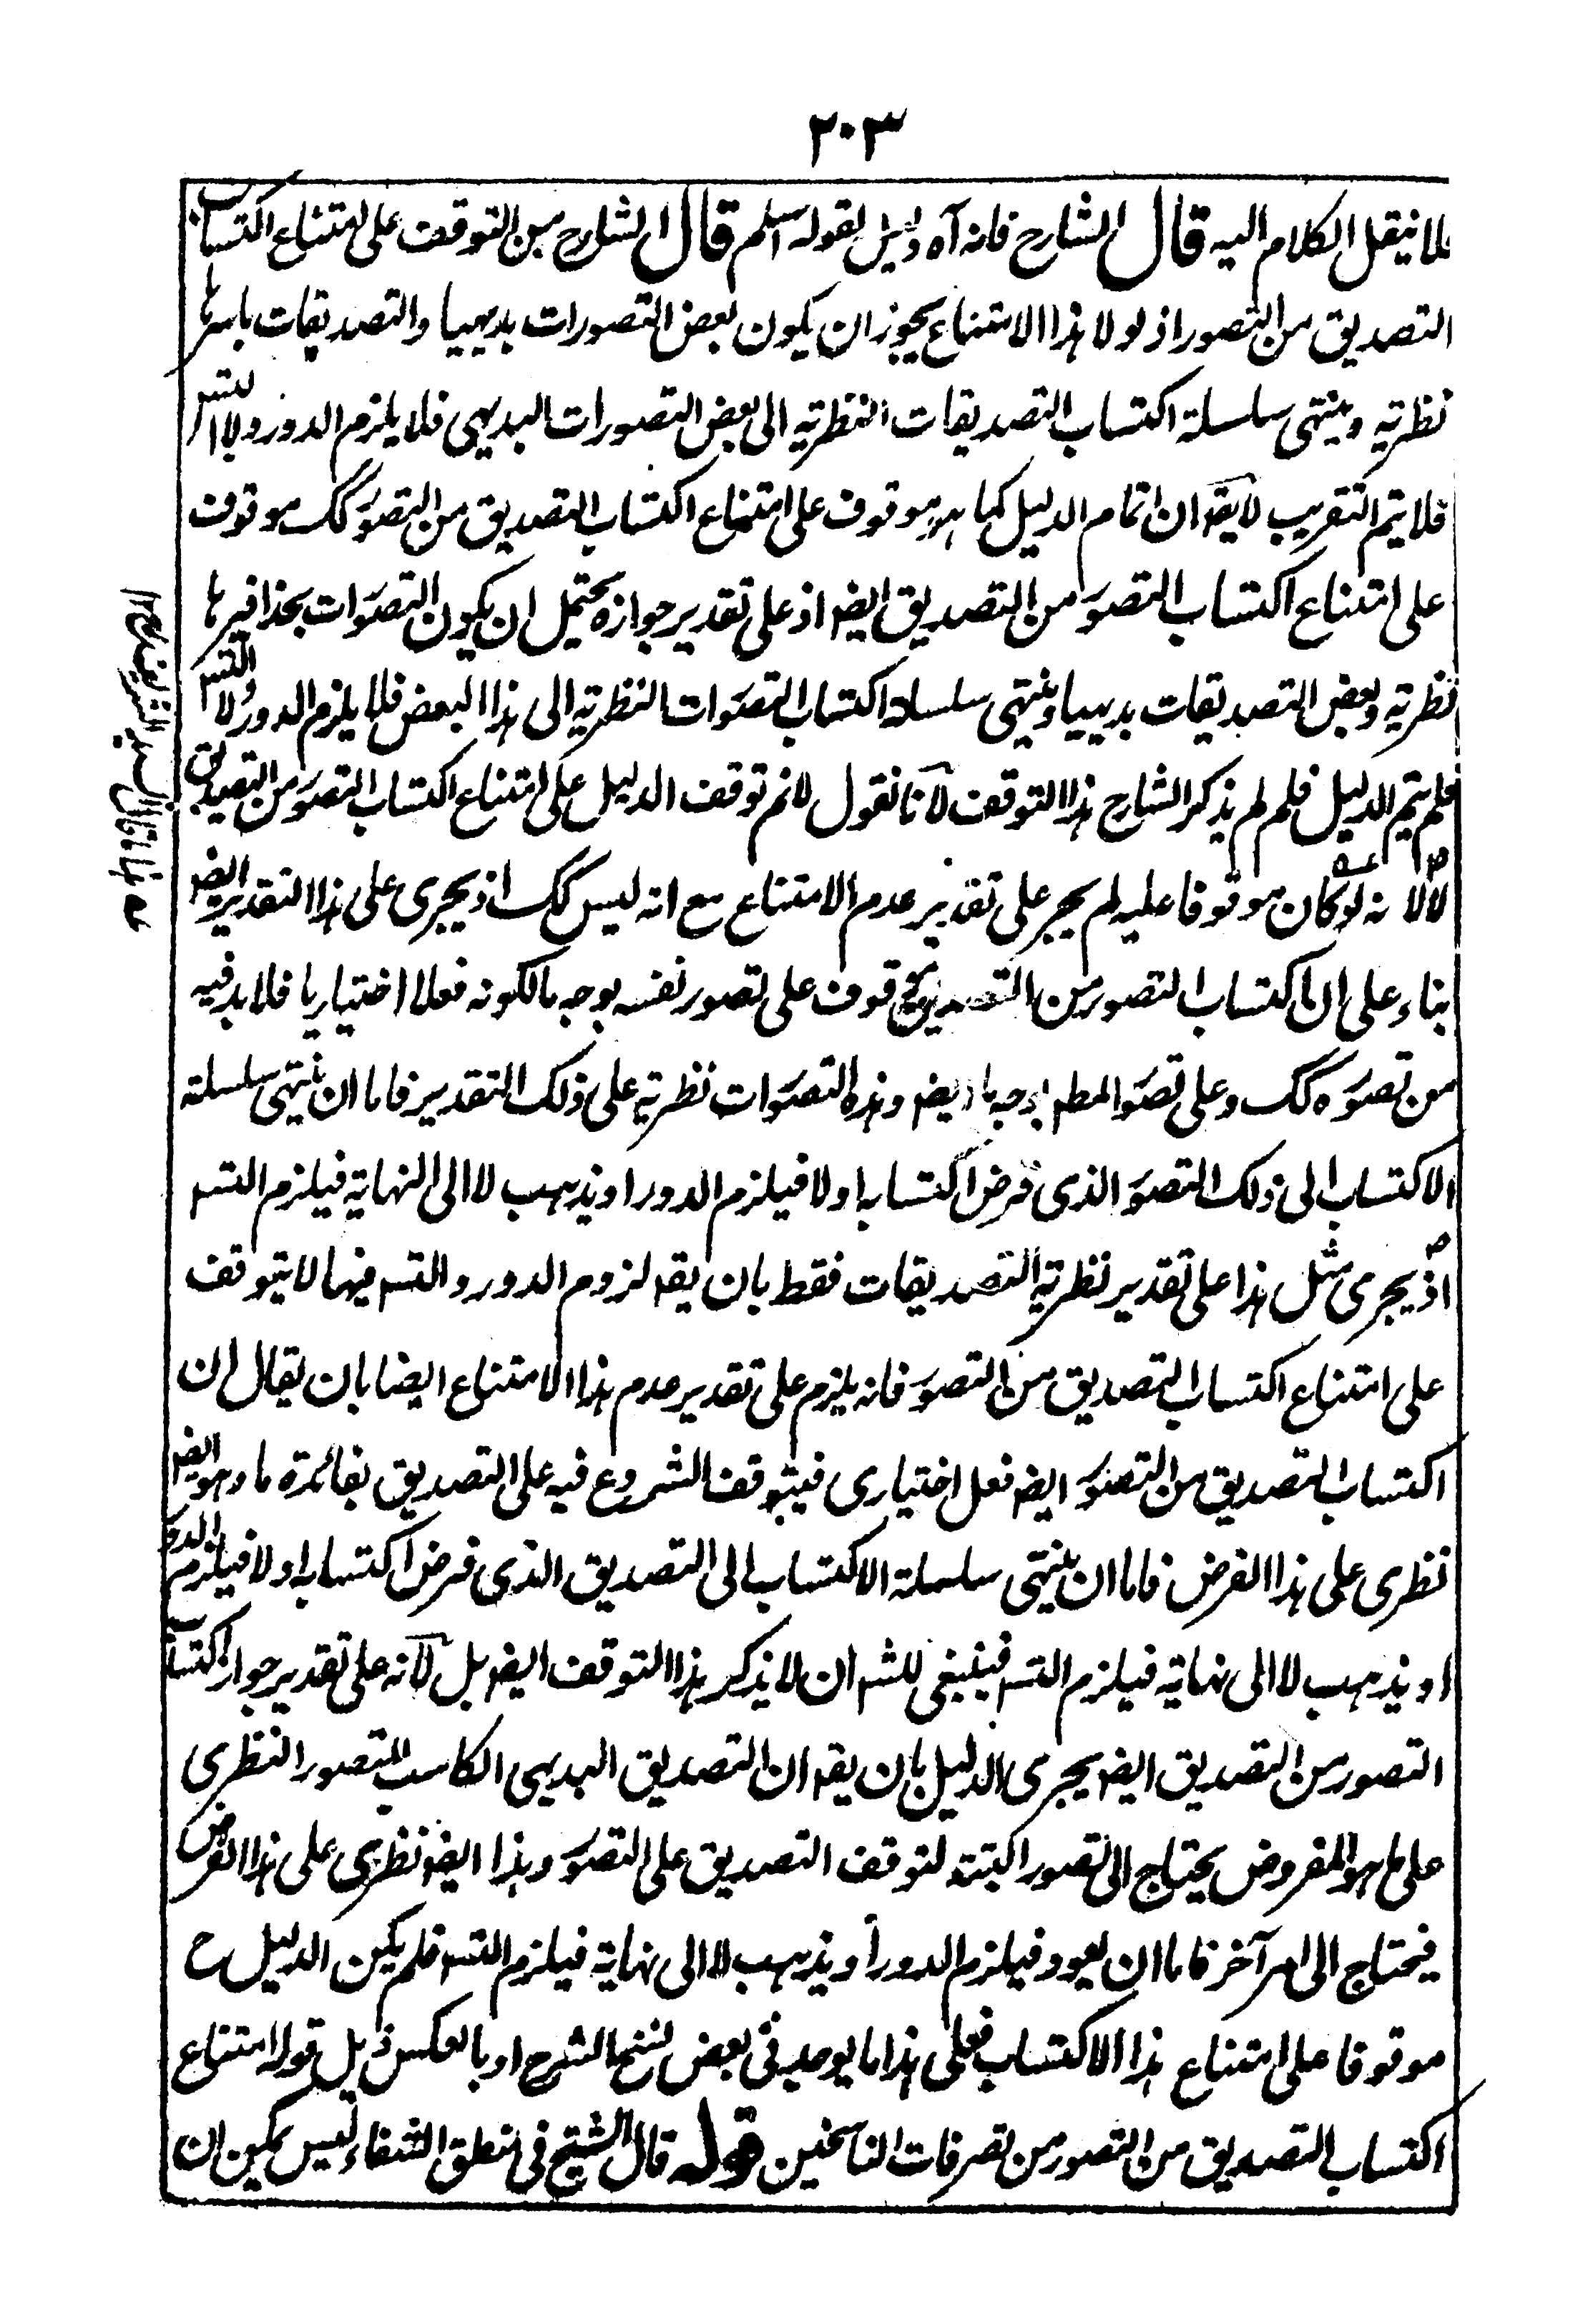 ٢٠٣
فلا ينقل الكلام اليه قال الشارح فانه آه دليل لقوله اسلم قال الشارح من التوقف على امتناع اكتساب
التصديق من التصور اذ لولا هذا الامتناع يجوز ان يكون بعض التصورات بديهيا والتصديقات باسرها
نظرية وينتهى سلسلة اكتساب التصديقات النظرية الى بعض التصورات البديهى فلا يلزم الدور ولا التسـ
فلا يتم التقريب لا يقـ ان اتمام الدليل كما هو موقوف على امتناع اكتساب التصديق من التصور كك موقوف
على امتناع اكتساب التصور من التصديق ايضـ اذ على تقدير جوازه يحتمل ان يكون التصورات بحذافيرها
نظرية وبعض التصديقات بديهيا وينتهى سلسلة اكتساب التصورات النظرية الى هذا البعض فلا يلزم الدور ولا التسـ
فلم يتم الدليل فلم لم يذكر الشارح هذا التوقف لانا نقول لانم توقف الدليل على امتناع اكتساب التصور من التصديق
لانه لو كان موقوفا عليه لم يجر على تقدير عدم الامتناع مع انه ليس كك اذ يجرى على هذا التقدير ايضـ
بناء على ان اكتساب التصور من التصديق موقوف على تصور نفسه بوجه ما لكونه فعلا اختياريا فلا بد فيه
من تصوره كك وعلى تصور المطـ بوجه ما ايضـ وهذه التصورات نظرية على ذلك التقدير فاما ان ينتهى سلسلة
الاكتساب الى ذلك التصور الذى فرض اكتسابه اولا فيلزم الدور او يذهب لا الى النهاية فيلزم التسـ
اذ يجرى مثل هذا على تقدير نظرية التصديقات فقط بان يقـ لزوم الدور والتسـ فيها لا يتوقف
على امتناع اكتساب التصديق من التصور فانه يلزم على تقدير عدم هذا الامتناع ايضا بان يقال ان
اكتساب التصديق من التصور ايضـ فعل اختيارى فيتوقف الشروع فيه على التصديق بفائدة ما وهو ايضـ
نظرى على هذا الفرض فاما ان ينتهى سلسلة الاكتساب الى التصديق الذى فرض اكتسابه اولا فيلزم الدور
او يذهب لا الى نهاية فيلزم التسـ فينبغى للشـ ان لا يذكر هذا التوقف ايضـ بل لانه على تقدير جواز اكتساب
التصور من التصديق ايضـ يجرى الدليل بان يقـ ان التصديق البديهى الكاسب للتصور النظرى
على ما هو المفروض يحتاج الى تصور البتة لتوقف التصديق على التصور وهذا ايضـ نظرى على هذا الفرض
فيحتاج الى امر آخر فاما ان يعود فيلزم الدور أو يذهب لا الى نهاية فيلزم التسـ فلم يكن الدليل ح
موقوفا على امتناع هذا الاكتساب فعلى هذا ما يوجد فى بعض نسخ الشرح او بالعكس ذيل قوله امتناع
اكتساب التصديق من التصور من تصرفات الناسخين قوله قال الشيخ فى منطق الشفاء ليس يمكن ان